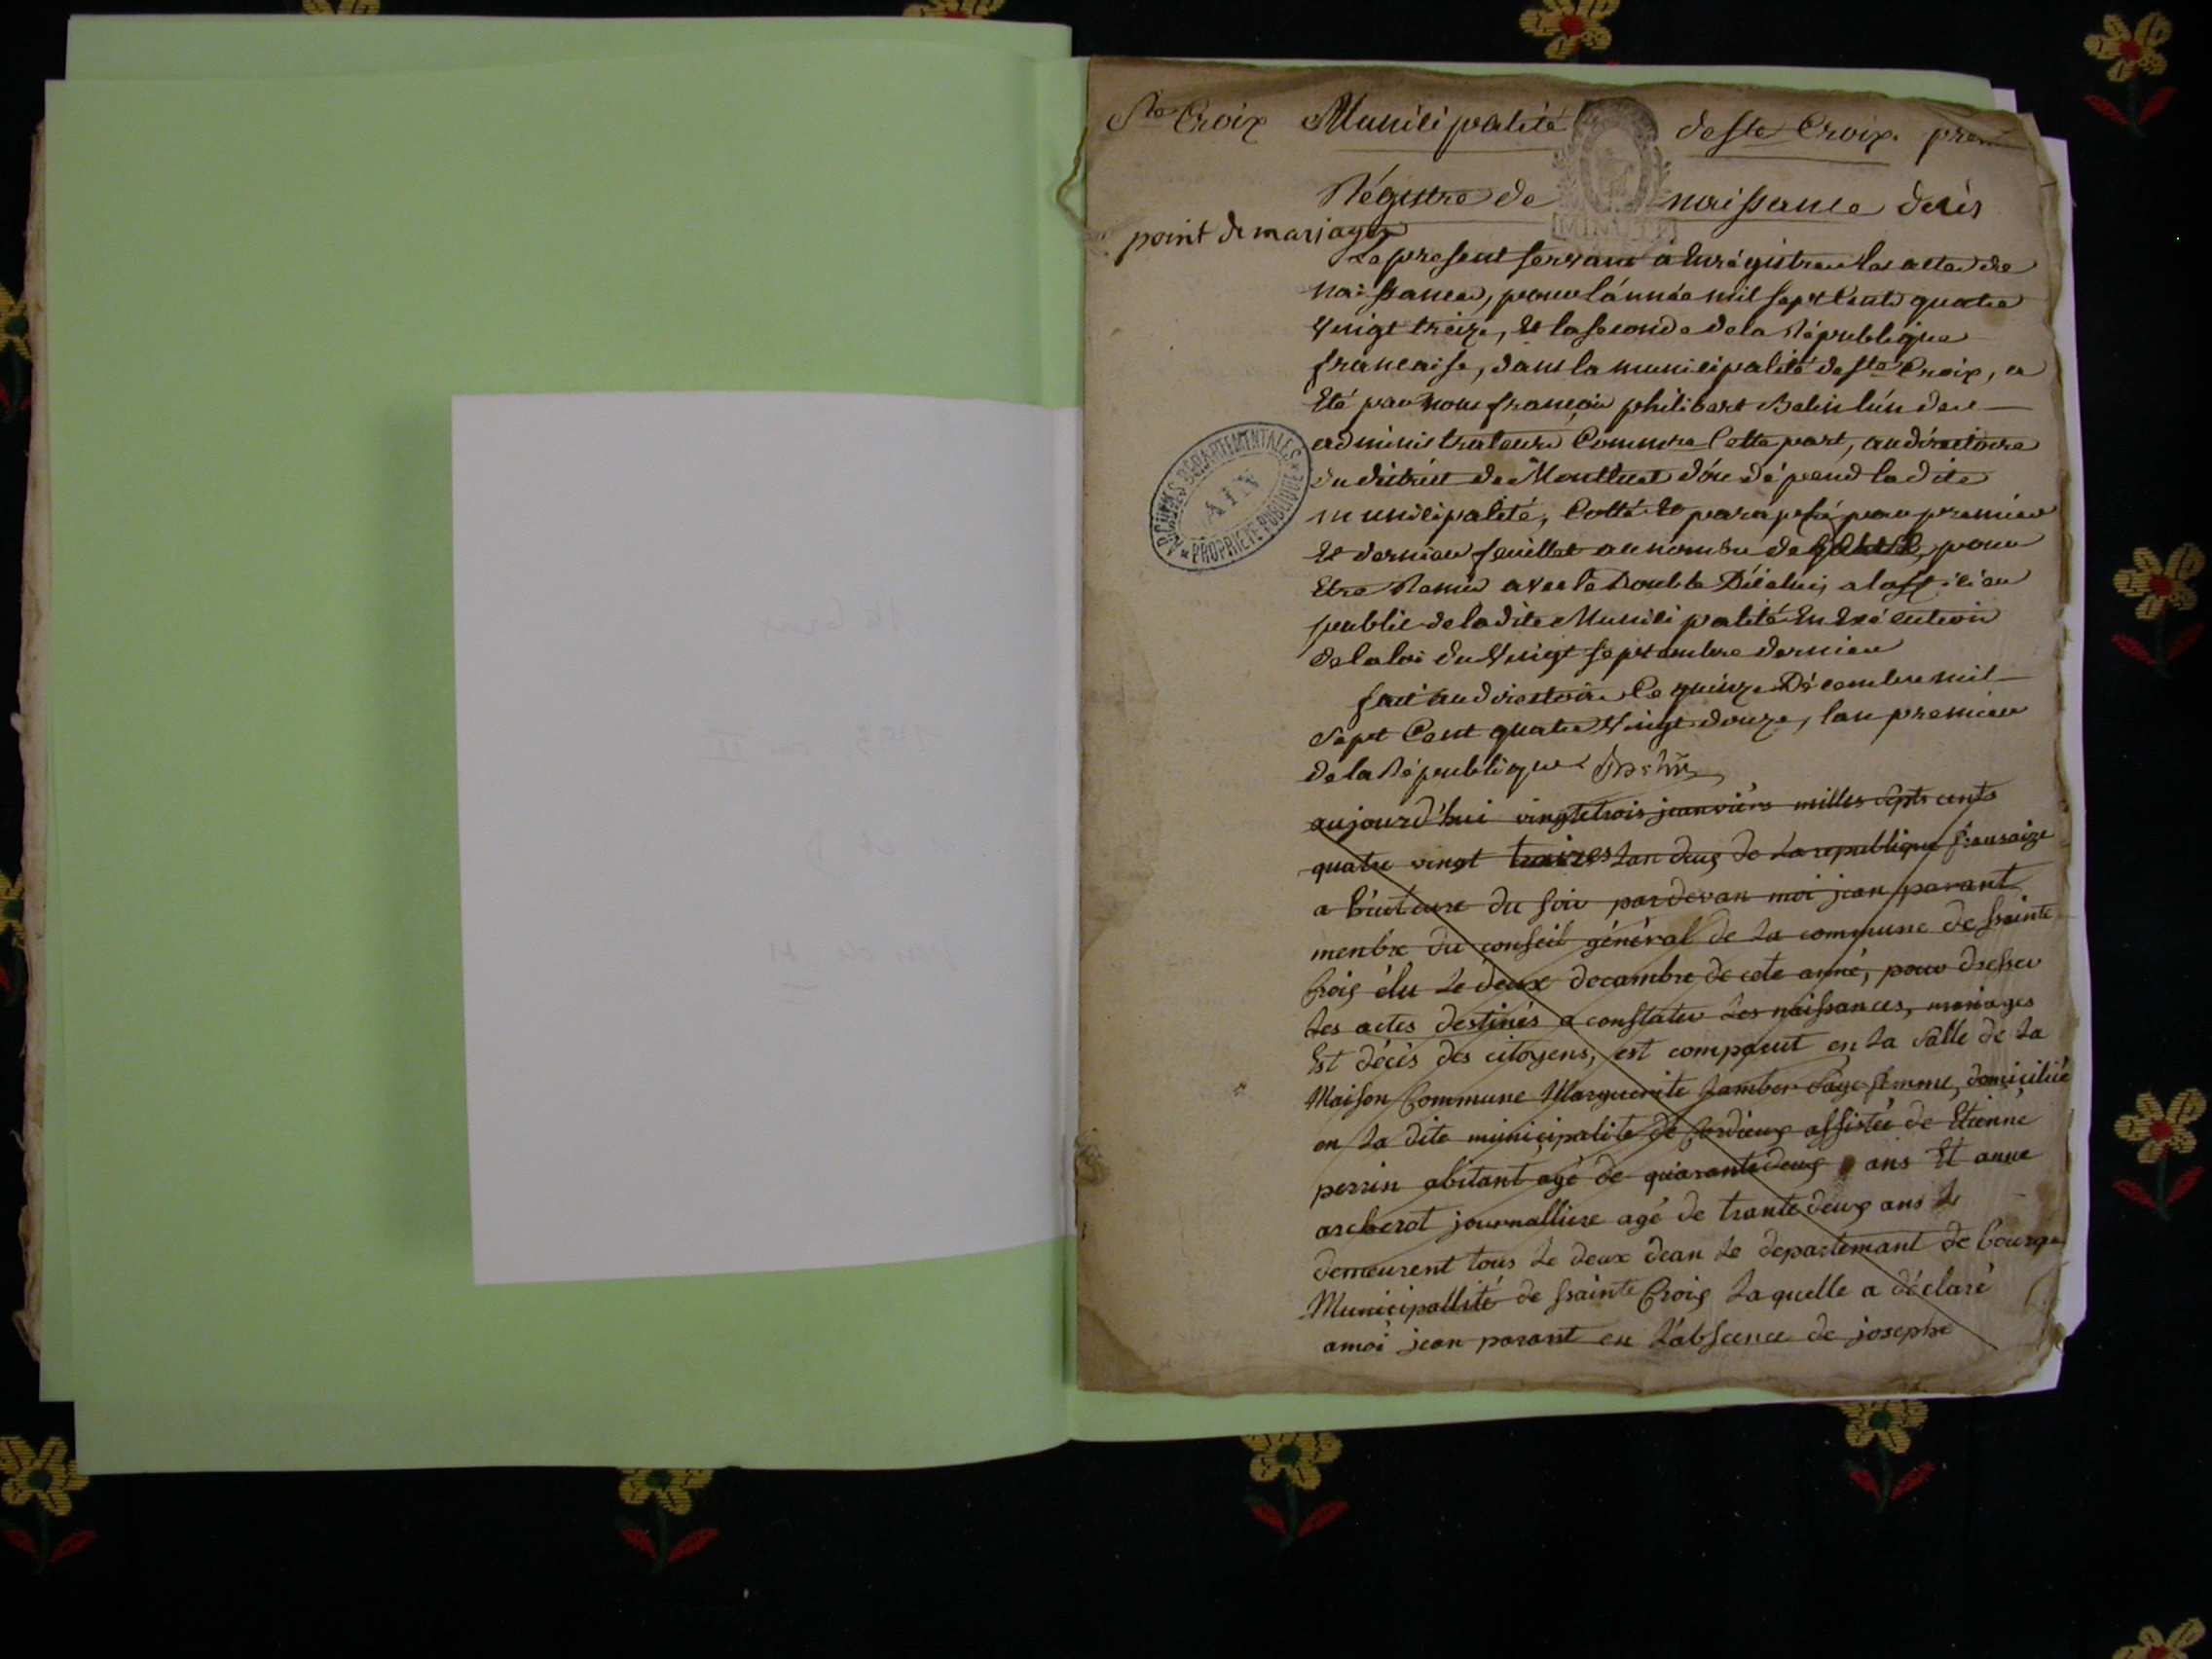 Ste Croix Municipalité de ste Croix. prem
Régistre de naissance décès
MINUTE
point de mariages
Le present servant a Enrégistrer les actes de
naissances, pour l'année mil sept Cent quatre
Vingt treize, Et la seconde de la République
francaise, dans la municipalité de ste Croix, a
Eté par nous françois philibert Belin l'un des
administrateurs Comm're Cette part, au directoire
du district de Montluel d'ou dépend la dite
municipalité, Cotté Et paraphé par premier
Et dernier feuillet au nombre de pour
Etre Remis avec le Double D'icelui, a l'officier
public de la dite Municipalité En Exécution
de la loi du Vingt septembre dernier
fait au directoire Ce quinze Décembre mil
Sept Cent quatre Vingt douze, l'an premier
de la République
ARCHIVES DÉPARTEMENTALES
AIN
* PROPRIÉTÉ PUBLIQUE *
aujourd'hui vingtetrois jeanviérs milles septs cents
quatre vingt traizes Lan deuz de La republique fransaize
a huiteure du soir pardevan moi jean parant
menbre du conseil général de La commune de ssainte
Croiz élu Le deux decambre de cete anné, pour dresser
Les actes destinés a constater Les naissances, mariages
Est décès des citoyens, est comparut en La Salle de La
Maison Commune Marguerite Lamber Sage femme, domiciliée
en La dite municipalite de Cordieuz assistée de Etienne
perrin abitant agé de quarantedeuz ans Et anne
archerot journalliere agé de trantedeuz ans Le
demeurent tous Le deux dean Le departemant de bourge
Municipallité de ssainte Croiz Laquelle a déclaré
amoi jean parant en L'abscence de josephe